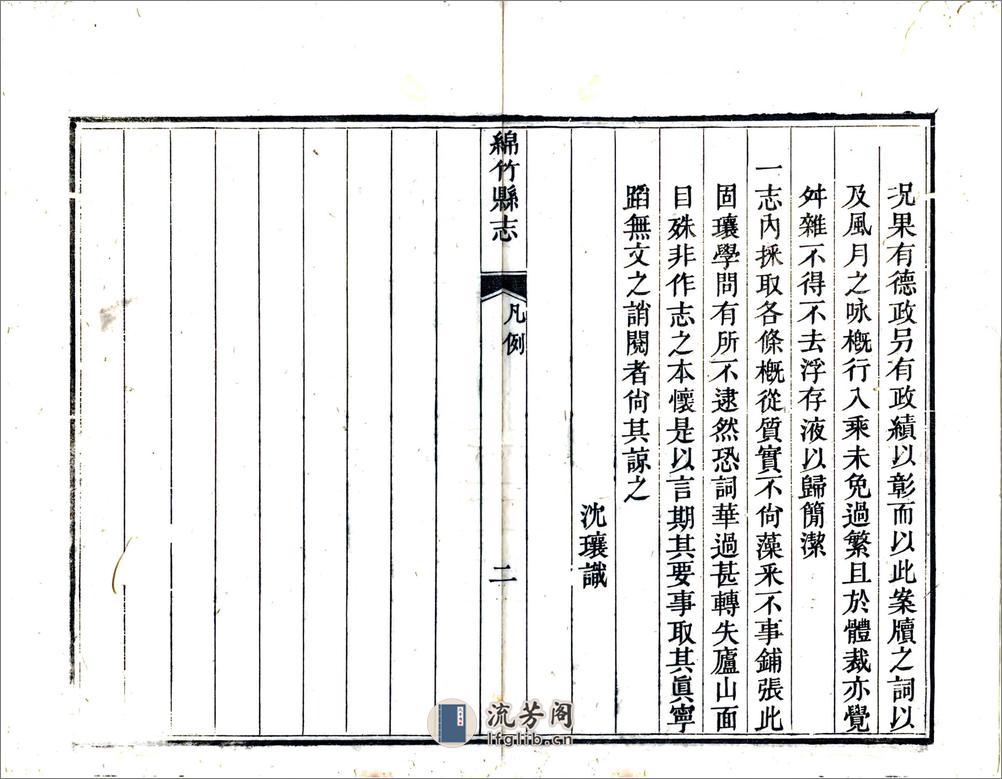 况果有德政另有政績以彰而以此案牘之詞以
及風月之咏槪行入乘未免過繁且於體裁亦覺
舛雜不得不去浮存液以歸簡潔
一志內採取各條槪從質實不尙藻釆不事鋪張此
固瓖學問有所不逮然恐詞華過甚轉失廬山面
目殊非作志之本懷是以言期其要事取其眞寧
蹈無文之誚閱者尙其諒之
沈瓖識
綿竹縣志
凡例
二
流芳阁
lfglib.cn